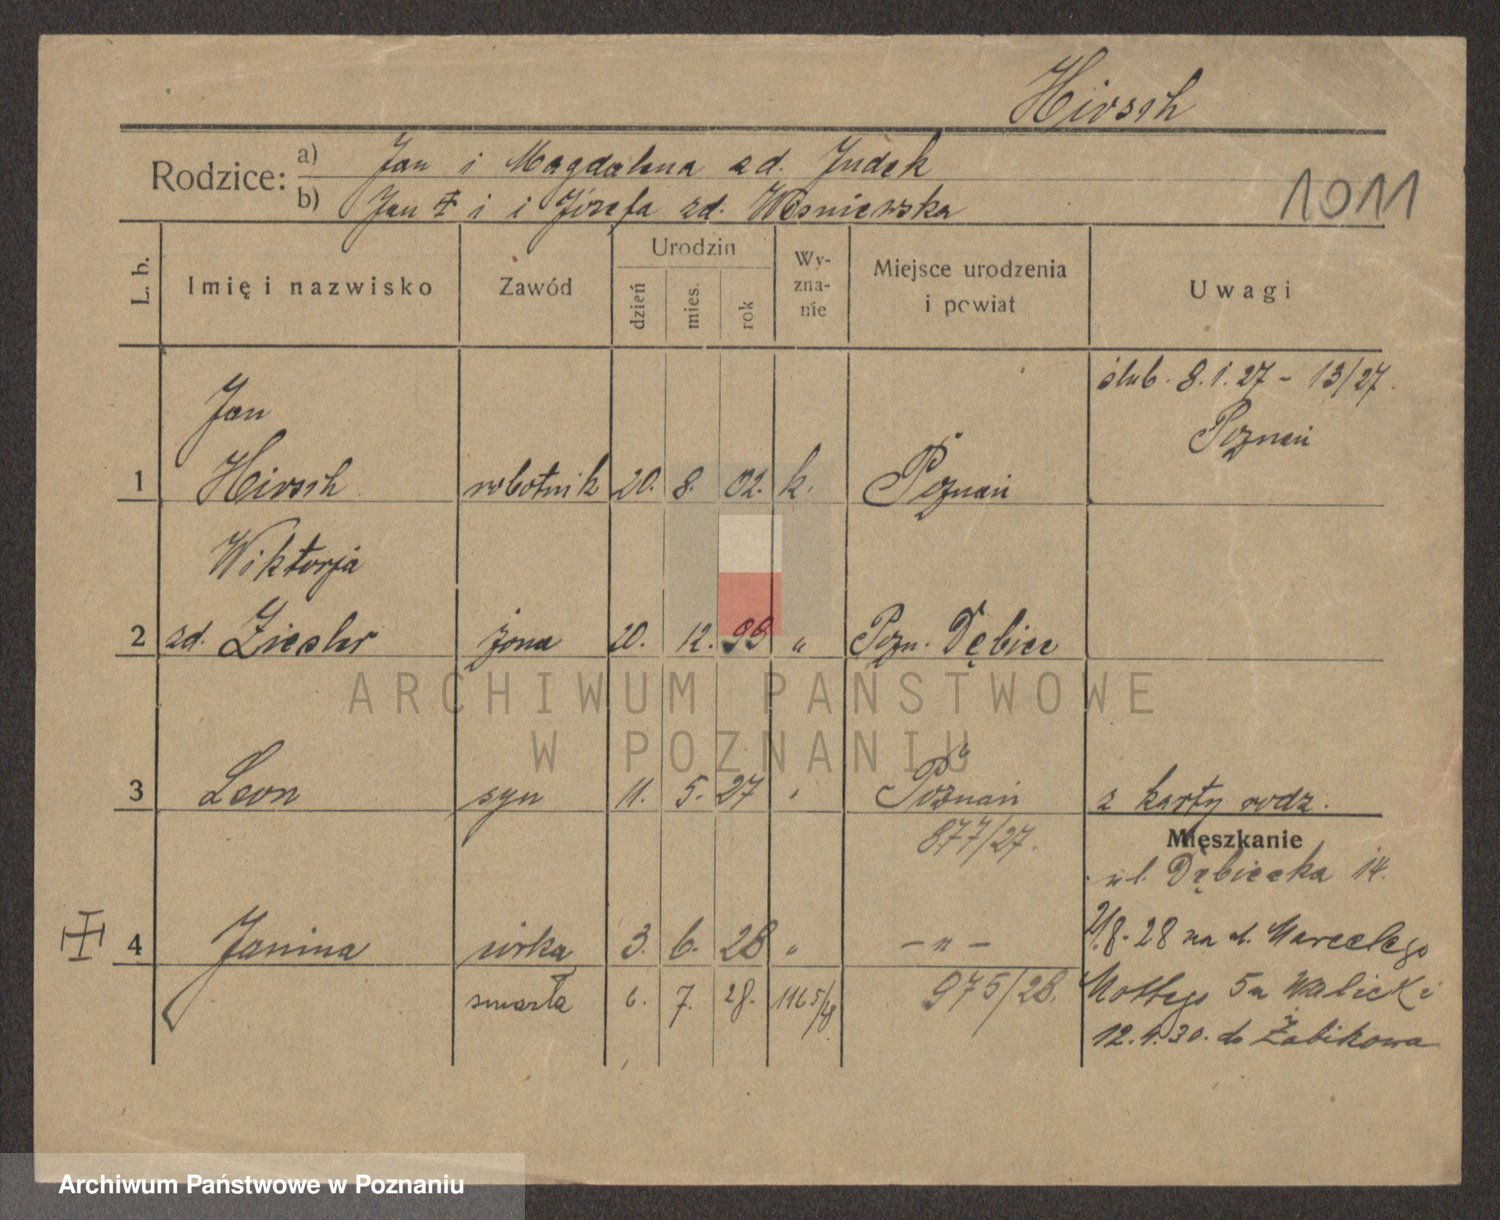 Hirsch
Rodzice:
a) Jan i Magdalena zd. Judek
b) Jan i i Józefa zd. Wiśniewska
1011
L. b.
Imię i nazwisko
Zawód
Urodzin
dzień
mies.
rok
Wy-
zna-
nie
Miejsce urodzenia
i powiat
Uwagi
ślub. 8.1.27 - 13/27.
Poznań
Jan
1 Hirsch robotnik 20. 8. 02. k. Poznań
Wiktorja
2 zd. Ziesler żona 20. 12. 99 „ Pozn. Dębiec
3 Leon syn 11. 5. 27 „ Poznań z karty rodz.
877/27.
Mieszkanie
ul. Dębiecka 14.
4 Janina córka 3. 6. 28 „ — „ —
zmarła 6. 7. 28. 1165/28
975/28.
8.28 na ul. Marcelego
Mottego 5a Walicki
12.4.30. do Żabikowa
ARCHIWUM PAŃSTWOWE
W POZNANIU
Archiwum Państwowe w Poznaniu